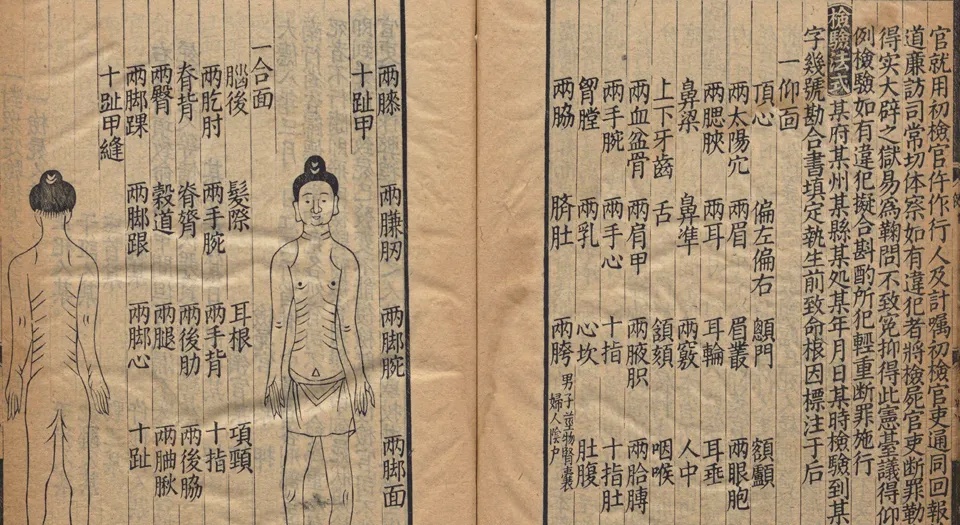 官就用初檢官仵作行人及計囑初檢官吏通同回報
道廉訪司常切体察如有違犯者將檢屍官吏断罪勒
得实大辟之獄易爲鞫問不致冤抑得此憲䑓議得仰
例檢驗如有違犯擬合斟酌所犯輕重断罪施行
檢驗法式某府某州某縣某処某年月日某時檢驗到某
字幾號勘合書填定執生前致命根因標注于后
一仰面
頂心 偏左偏右 顖門 額顱
兩太陽穴 兩眉 眉叢 兩眼胞
兩腮脥 兩耳 耳輪 耳垂
鼻梁 鼻準 兩竅 人中
上下牙齒 舌 頷頦 咽喉
兩血盆骨 兩肩甲 兩腋胑 兩胳膊
兩手腕 兩手心 十指 十指肚
胷膛 兩乳 心坎 肚腹
兩脇 臍肚 兩胯 男子莖物腎囊 婦人陰户
兩膝 兩臁肕 兩脚腕 兩脚面
十趾甲
一合面
腦後 髮際 耳根 項頸
兩肐肘 兩手腕 兩手背 十指
脊背 脊膂 兩後肋 兩後脇
兩臀 穀道 兩腿
兩脚踝 兩脚跟 兩脚心 十趾
十趾甲縫